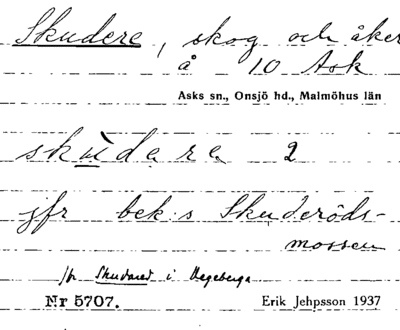 Skudere, skog och åker
å 10 Ask
Asks sn., Onsjö hd., Malmöhus län
skùdara 2
jfr bek:s Skuderöds-
mossen
jfr Skudared i Hegeberga
Nr 5707. Erik Jehpsson 1937